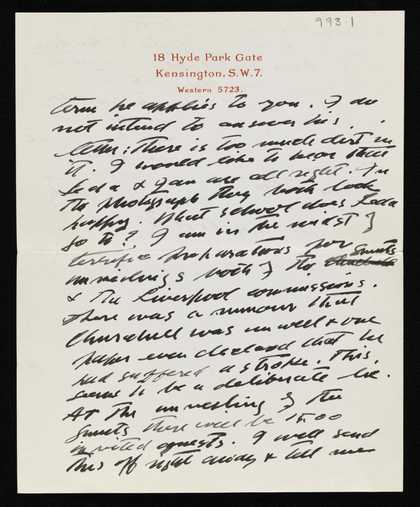 993.1
18 Hyde Park Gate
Kensington, S.W.7.
Western 5723.
term he applies to you. I do
not intend to answer his
letter; there is too much dirt in
it. I would like to hear that
Leda & Jan are all right. In
the photograph they both look
happy. What school does Leda
go to? I am in the midst of
terrific preparations for
unveilings both of the Smuts
& the Liverpool commissions.
There was a rumour that
Churchill was unwell & one
paper even declared that he
had suffered a stroke. This
seems to be a deliberate lie.
At the unveiling of the
Smuts there will be 1500
invited guests. I will send
this off right away & tell me